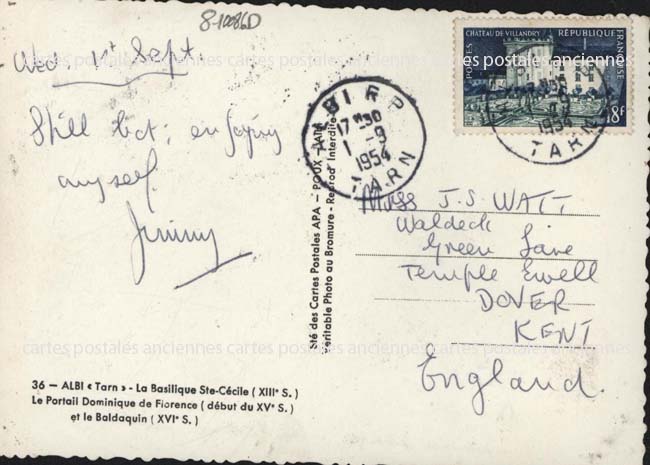 8-10086D
Wed 1st Sept.
Still hot, enjoying
myself.
Jimmy
CHÂTEAU DE VILLANDRY
RÉPUBLIQUE FRANÇAISE
POSTES
18F
ALBI R.P.
17H30
1-9
1954
TARN
1954
TARN
Sté des Cartes Postales APA - POUX - ALBI
Véritable Photo au Bromure - Reprod. Interdite
Miss J.S. WATT
Waldeck
Green Lane
Temple Ewell
DOVER
KENT
England.
cartes postales anciennes cartes postales anciennes cartes postales anciennes
36 — ALBI « Tarn » - La Basilique Ste-Cécile ( XIIIe S. )
Le Portail Dominique de Florence ( début du XVe S. )
et le Baldaquin ( XVIe S. )